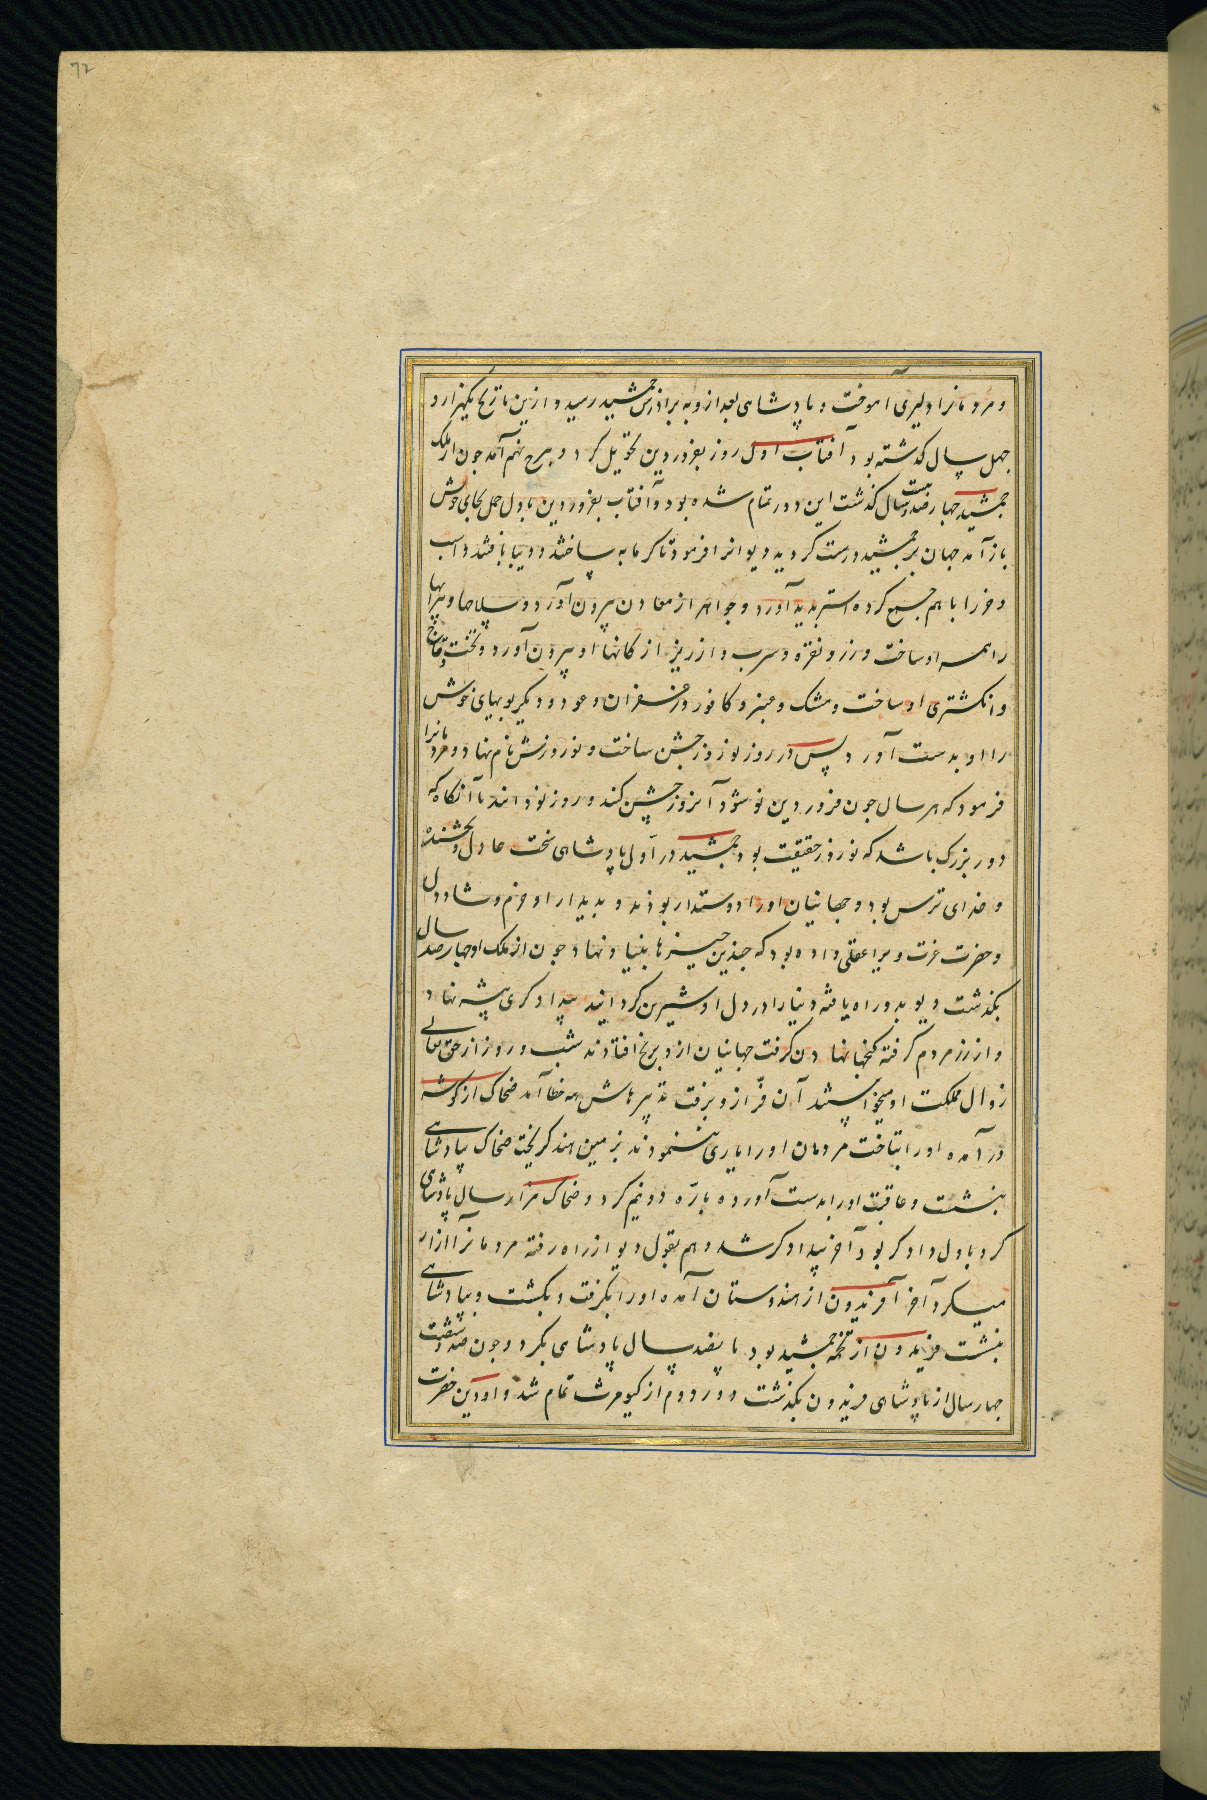 72
و مردمانرا دلیری آموخت و پادشاهی بعد ازو به برادرش جمشید رسید و ازین تاریخ یکهزار و
چهل سال گذشته بود آفتاب اول روز بفروردین تحویل کرد و ببرج نهم آمد چون از ملک
جمشید چهارصد و بیست سال گذشت این دور تمام شده بود و آفتاب بفروردین باول حمل بجای خویش
باز آمد جهان بر جمشید درست گردید دیوانرا فرمود تا گرمابه ساختند و دیبا بافتند و اسب
و خر را با هم جمع کرده استر بدید آورد و جواهر از معادن بیرون آورد و سلاحها و پیرایها
را همه او ساخت و زر و نقره و مس و سرب و ارزیز از کانها او بیرون آورد و تخت و تاج
و انگشتری او ساخت و مشک و عنبر و کافور و زعفران و عود و دیگر بویهای خوش
را او بدست آورد پس در روز نوروز جشن ساخت و نوروزش نام نهاد و مردمانرا
فرمود که هر سال چون فروردین نو شود آنروز جشن کنند و روز نو دانند تا آنگاه که
دور بزرگ باشد که نوروز حقیقت بود جمشید در اول پادشاهی سخت عادل و بخشنده
و خدای ترس بود و جهانیان اورا دوستدار بودند و بدیدار او خرم و شاددل
و حضرت عزت ویرا عقلی داده بود که چندین چیزها بنیاد نهاد چون از ملک او چهارصد سال
بگذشت دیو بدو راه یافته دنیا را در دل او شیرین گردانید بیدادگری پیشه نهاد
و از زر مردم گرفته گنجها نهادن گرفت جهانیان ازو برنج افتادند شب و روز از حق تعالی
زوال مملکت او میخواستند آن فرّ ازو برفت تدبیرهاش همه خطا آمد ضحاک از گوشه
در آمده اورا بتاخت مردمان اورا یاری ننمودند بزمین هند گریخت ضحاک بپادشاهی
بنشست و عاقبت اورا بدست آورده باره دو نیم کرد و ضحاک هزار سال پادشاهی
کرد باول دادگر بود آخر بیدادگر شد و هم بقول دیو از راه رفته مردمانرا آزار
میکرد آخر آفریدون از هندوستان آمده اورا بگرفت و بکشت و بپادشاهی
بنشست فریدون از تخمه جمشید بود پانصد سال پادشاهی بکرد و چون صد و شصت
چهار سال از پادشاهی فریدون بگذشت دور دوم از کیومرث تمام شد و او دین حضرت